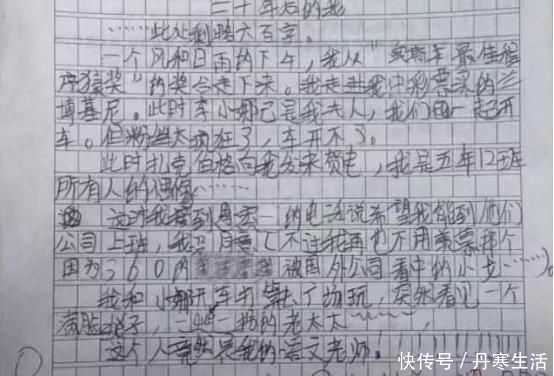 二十年后的我
……此处剩略六百字。
一个风和日雨的下午，我从"奥斯卡最佳程
序猿奖"的奖台走下来。我走进我中彩票买的兰
博基尼。此时李小娜已是我夫人，我们一起开
车。但粉丝太疯狂了，车开不了。
此时扎克伯格向我发来贺电，我是五年12班
所有人的偶像……
这时我接到马云的电话说希望我能到他们
公司上班，我同意（不过我再也不用
因为360的 被国外公司看中的小龙……）。
我和小娜开车 了 玩，突然看见一个
满脸 子，二 的老太太……，
这个人竟然是我的语文老师！
快传号/丹寒生活